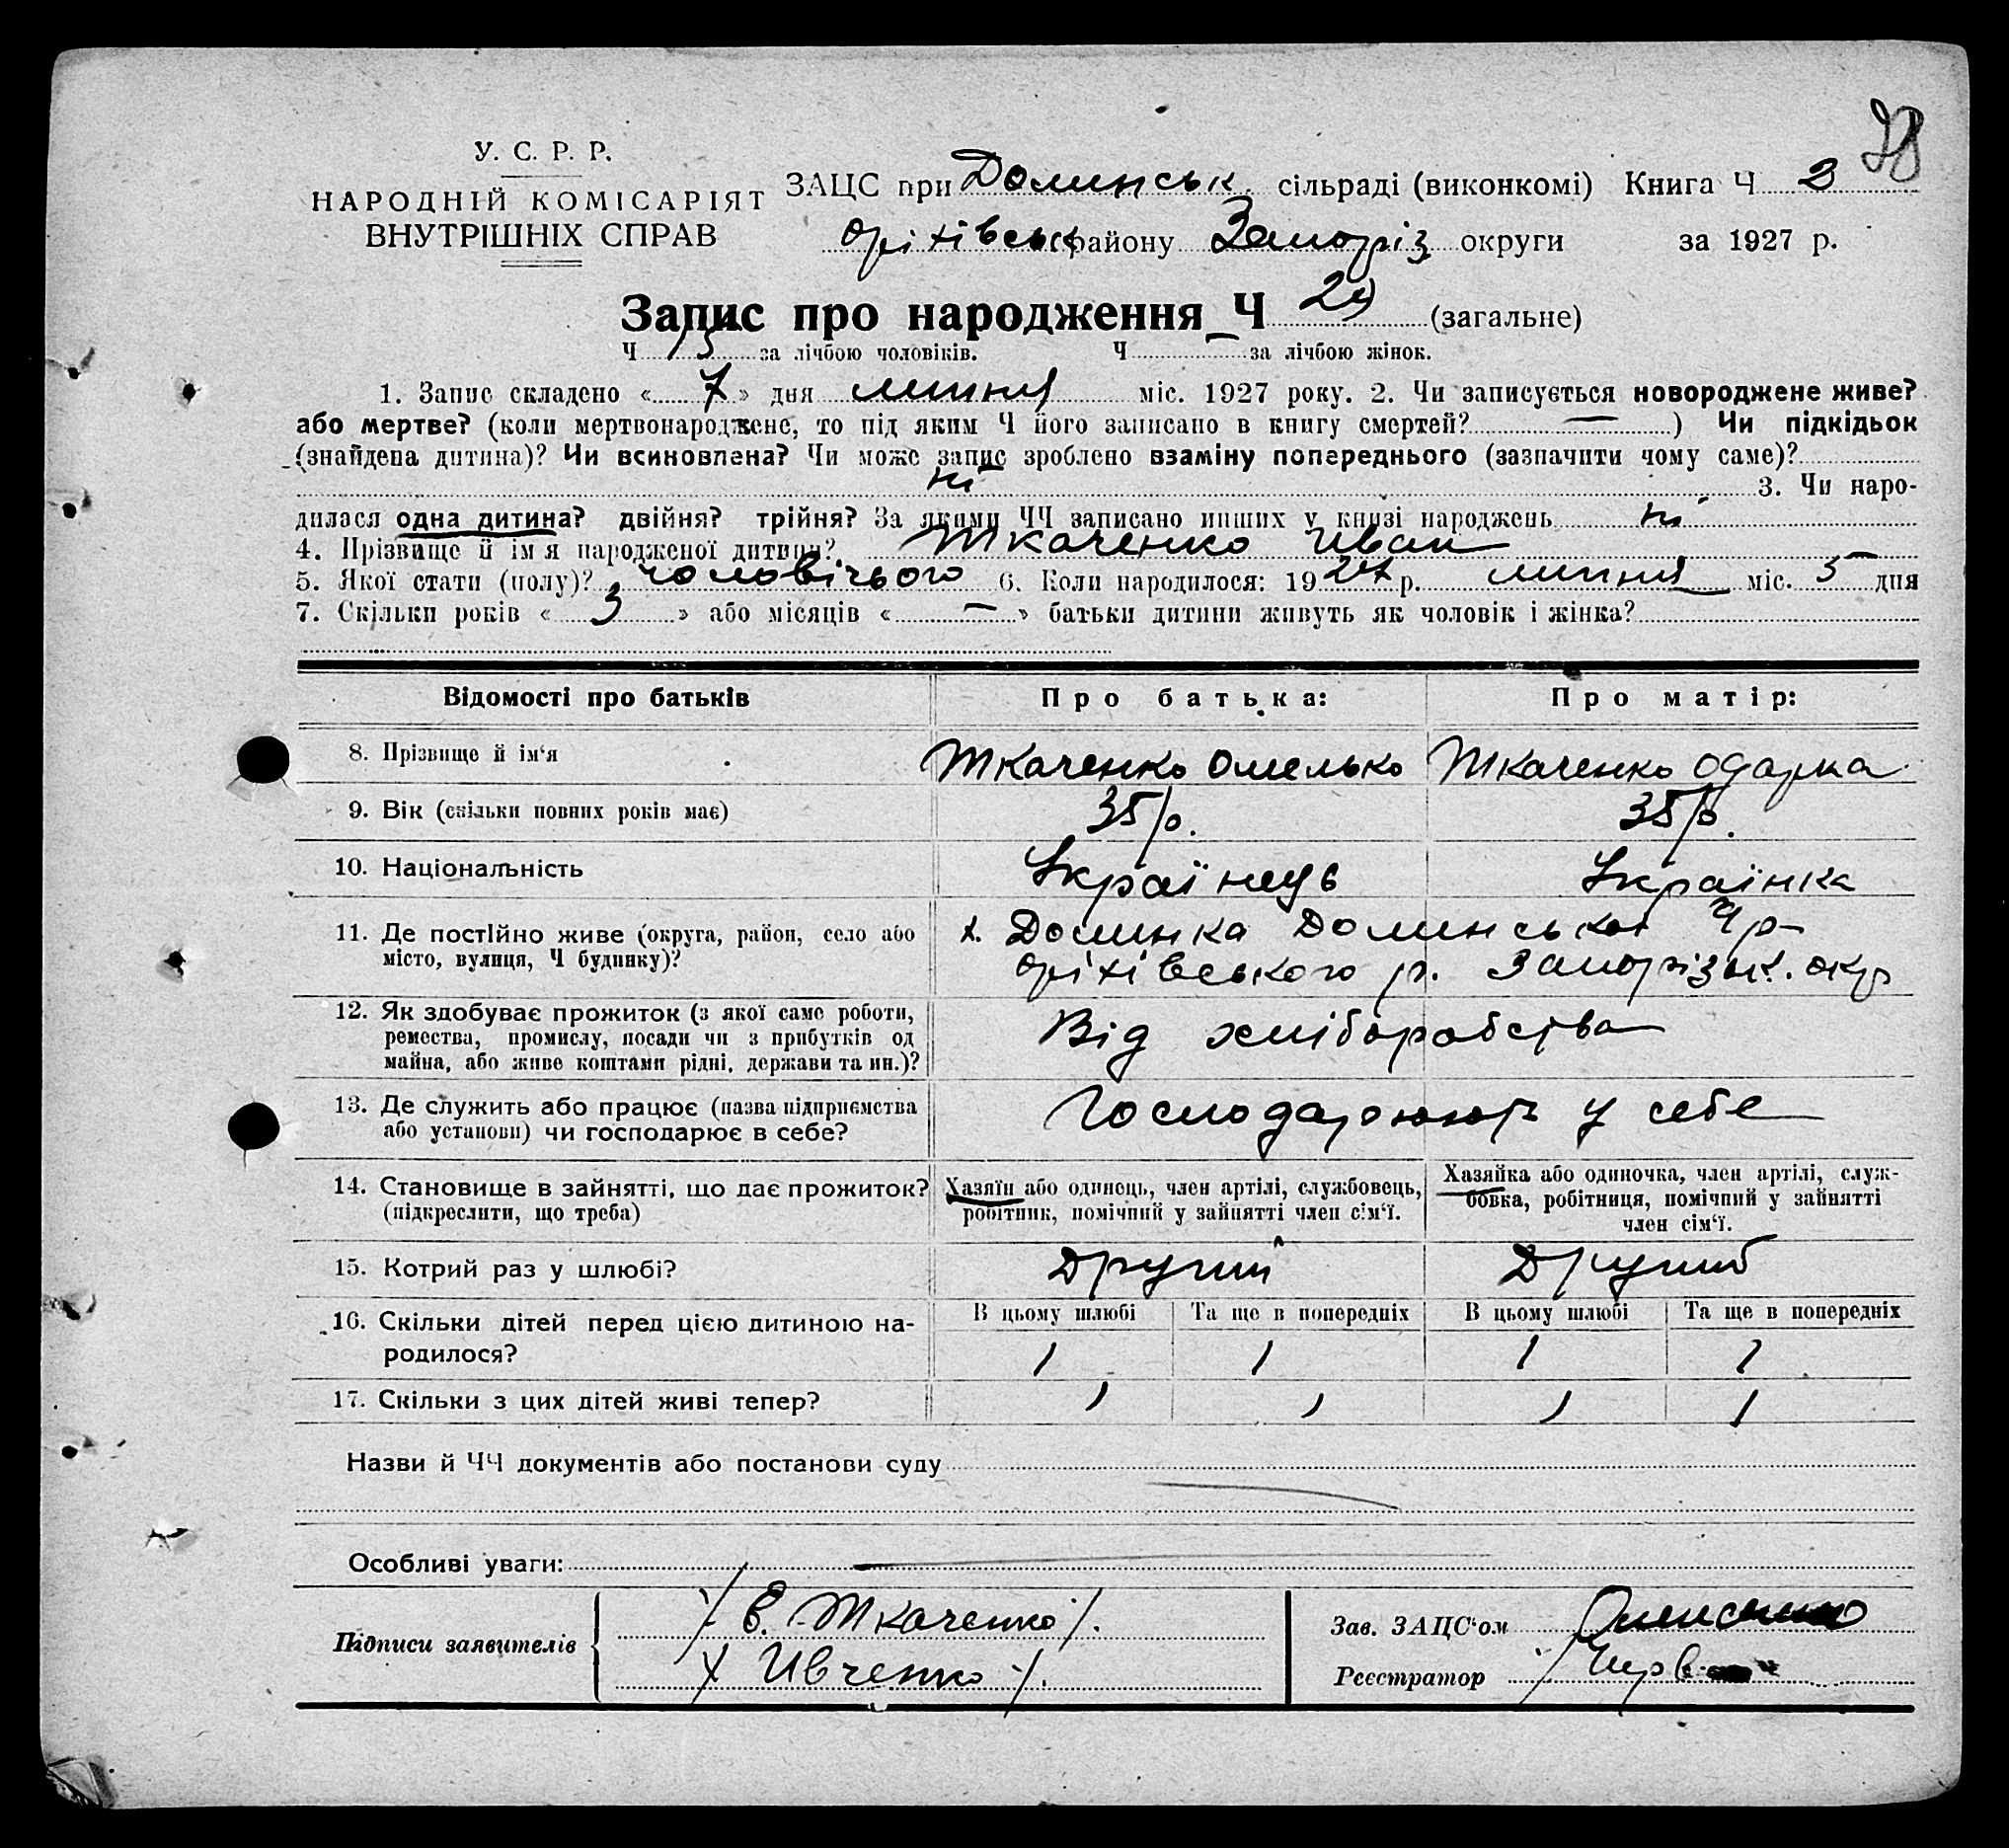 28
У. С. Р. Р.
НАРОДНІЙ КОМІСАРІЯТ
ВНУТРІШНІХ СПРАВ
ЗАЦС при Долинськ. сільраді (виконкомі) Книга Ч 2
Оріхівськ району Запоріз округи за 1927 р.
Запис про народження Ч 29 (загальне)
Ч 13 за лічбою чоловіків. Ч — за лічбою жінок.
1. Запис складено « 7 » дня липня міс. 1927 року. 2. Чи записується новороджене живе?
або мертве? (коли мертвонароджене, то під яким Ч його записано в книгу смертей? — ) Чи підкідьок
(знайдена дитина)? Чи всиновлена? Чи може запис зроблено взаміну попереднього (зазначити чому саме)?
ні 3. Чи наро-
дилася одна дитина? двійня? трійня? За якими ЧЧ записано инших у книзі народжень ні
4. Прізвище й ім'я народженої дитини? Ткаченко Иван
5. Якої стати (полу)? чоловічього 6. Коли народилося: 1927 р. липня міс. 5 дня
7. Скільки років « 3 » або місяців « — » батьки дитини живуть як чоловік і жінка?
Відомості про батьків Про батька: Про матір:
8. Прізвище й ім'я Ткаченко Омелько Ткаченко Одарка
9. Вік (скільки повних років має) 35 р. 35 р.
10. Національність Українець Українка
11. Де постійно живе (округа, район, село або х. Долинка Долинської
місто, вулиця, Ч будинку)? Оріхівського р. Запорізьк. окр
12. Як здобуває прожиток (з якої саме роботи,
ремества, промислу, посади чи з прибутків од Від хліборобства
майна, або живе коштами рідні, держави та ин.)?
13. Де служить або працює (назва підприємства Господарюють у себе
або установи) чи господарює в себе?
14. Становище в зайнятті, що дає прожиток? Хазяїн або одинець, член артілі, службовець, Хазяйка або одиночка, член артілі, служ-
(підкреслити, що треба) робітник, помічний у зайнятті член сім'ї. бовка, робітниця, помічний у зайнятті
член сім'ї.
15. Котрий раз у шлюбі? Другий Другий
16. Скільки дітей перед цією дитиною на- В цьому шлюбі Та ще в попередніх В цьому шлюбі Та ще в попередніх
родилося? 1 1 1 1
17. Скільки з цих дітей живі тепер? 1 1 1 1
Назви й ЧЧ документів або постанови суду
Особливі уваги:
Підписи заявителів / Е. Ткаченко /. Зав. ЗАЦС'ом
Ивченко /. Реєстратор